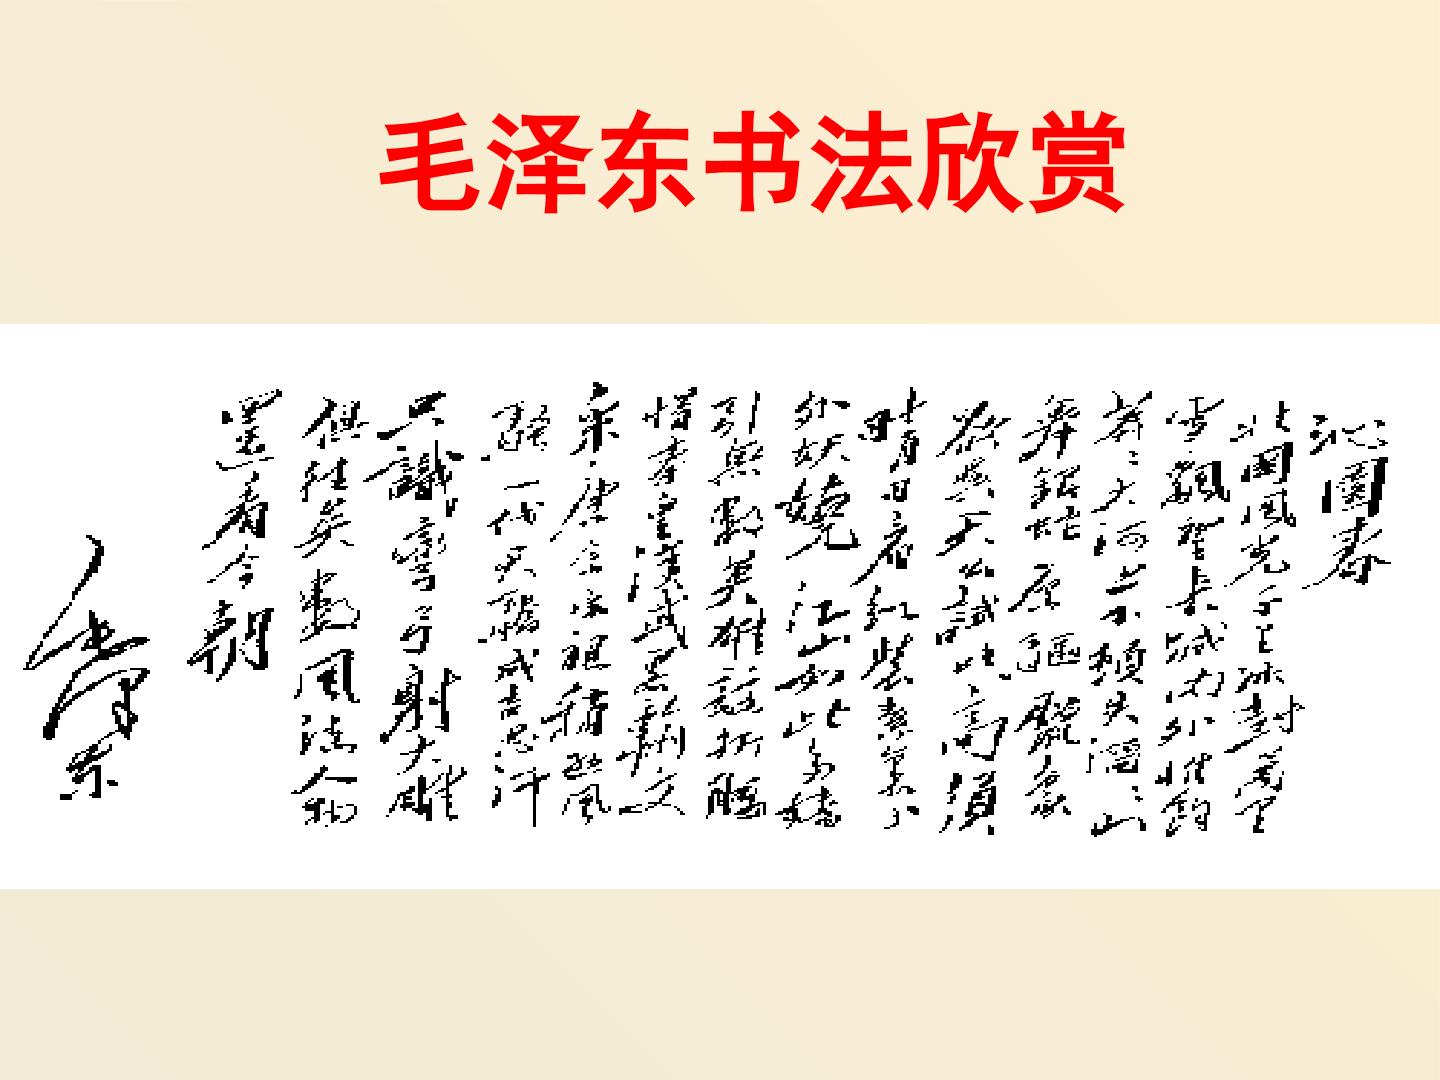 毛泽东书法欣赏
沁園春
北國風光千里冰封萬里
雪飄望長城内外惟餘
莽々大河上下頓失滔々山
舞銀蛇原驅臘象
欲與天公試比高須
晴日看紅裝素裹分
外妖嬈江山如此多嬌
引無數英雄競折腰
惜秦皇漢武略輸文
采唐宗宋祖稍遜風
騷一代天驕成吉思汗
只識彎弓射大雕
俱往矣數風流人物
還看今朝
毛澤東